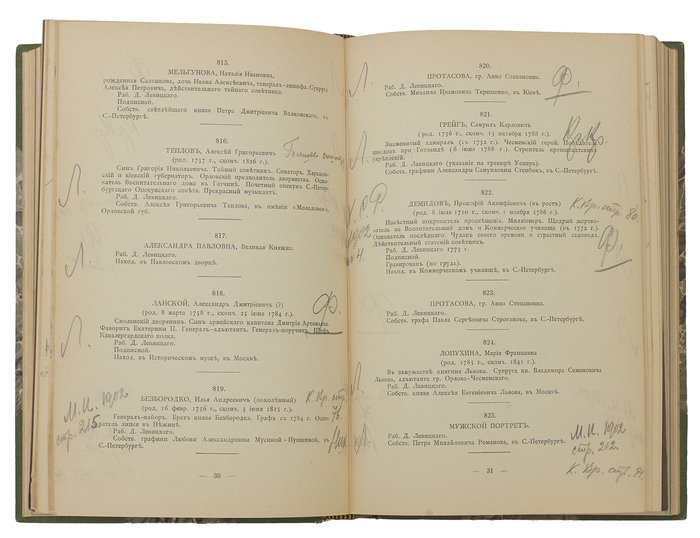 815.
МЕЛЬГУНОВА, Наталія Ивановна,
рожденная Салтыкова, дочь Ивана Алексѣевича, генералъ-аншефа. Супруга
Алексѣя Петровича, дѣйствительнаго тайнаго совѣтника.
Раб. Д. Левицкаго.
Подписной.
Собств. свѣтлѣйшаго князя Петра Дмитріевича Волконскаго, въ
С.-Петербургѣ.
816.
ТЕПЛОВЪ, Алексѣй Григорьевичъ
(род. 1757 г., сконч. 1826 г.)
Сынъ Григорія Николаевича. Тайный совѣтникъ. Сенаторъ. Харьков-
скій и кіевскій губернаторъ. Орловскій предводитель дворянства. Осно-
ватель Воспитательнаго дома въ Гатчинѣ. Почетный опекунъ С.-Петер-
бургскаго Опекунскаго совѣта. Прекрасный музыкантъ.
Раб. Д. Левицкаго.
Собств. Алексѣя Григорьевича Теплова, въ имѣніи «Молодовое»,
Орловской губ.
Л.
817.
АЛЕКСАНДРА ПАВЛОВНА, Великая Княжна.
Раб. Д. Левицкаго.
Наход. въ Павловскомъ дворцѣ.
Л.
818.
ЛАНСКОЙ, Александръ Дмитріевичъ (?)
(род. 8 марта 1758 г., сконч. 25 іюня 1784 г.)
Ф.
Смоленскій дворянинъ. Сынъ армейскаго капитана Дмитрія Артемьева.
Фаворитъ Екатерины II. Генералъ-адъютантъ. Генералъ-поручикъ. Шефъ
Кавалергардскаго полка.
Раб. Д. Левицкаго.
Подписной.
Наход. въ Историческомъ музеѣ, въ Москвѣ.
Л.
819.
БЕЗБОРОДКО, Илья Андреевичъ (поколѣнный)
(род. 16 февр. 1756 г., сконч. 3 іюня 1815 г.)
К. Кр. стр. 76
Генералъ-майоръ. Братъ князя Безбородка. Графъ съ 1784 г. Осно-
ватель лицея въ Нѣжинѣ.
Раб. Д. Левицкаго.
Собств. графини Любови Александровны Мусиной-Пушкиной, въ
С.-Петербургѣ.
М. И. 1902
стр. 215.
— 30 —
820.
ПРОТАСОВА, гр. Анна Степановна.
Раб. Д. Левицкаго.
Собств. Михаила Ивановича Терещенко, въ Кіевѣ.
Л.
Ф.
821.
ГРЕЙГЪ, Самуилъ Карловичъ
(род. 1736 г., сконч. 15 октября 1788 г.)
Знаменитый адмиралъ (съ 1782 г.). Чесменскій герой. Побѣдитель
шведовъ при Готландѣ (6 іюля 1788 г.). Строитель кронштадтскихъ
укрѣпленій.
Раб. Д. Левицкаго (указаніе на гравюрѣ Уокера).
Собств. графини Александры Самуиловны Стенбокъ, въ С.-Петербургѣ.
822.
ДЕМИДОВЪ, Прокофій Акинфіевичъ (въ ростъ)
(род. 8 іюля 1710 г., сконч. 1 ноября 1786 г.)
К. Кр. стр. 80
Извѣстный покровитель просвѣщенія. Милліонеръ. Щедрый жертво-
ватель на Воспитательный домъ и Коммерческое училище (въ 1772 г.)
Основатель послѣдняго. Чудакъ своего времени и страстный садоводъ.
Дѣйствительный статскій совѣтникъ.
Раб. Д. Левицкаго 1773 г.
Подписной.
Гравированъ (по грудь).
Наход. въ Коммерческомъ училищѣ, въ С.-Петербургѣ.
Ф.
1902
823.
ПРОТАСОВА, гр. Анна Степановна.
Раб. Д. Левицкаго.
Собств. графа Павла Сергѣевича Строганова, въ С.-Петербургѣ.
Л.
824.
ЛОПУХИНА, Марія Францовна
(род. 1765 г., сконч. 1841 г.)
Въ замужествѣ княгиня Львова. Супруга кн. Владимира Семеновича
Львова, адъютанта гр. Орлова-Чесменскаго.
Раб. Д. Левицкаго.
Собств. князя Алексѣя Евгеніевича Львова, въ Москвѣ.
Л.
825.
МУЖСКОЙ ПОРТРЕТЪ.
Раб. Д. Левицкаго.
Собств. Петра Михайловича Романова, въ С.-Петербургѣ.
Л.
М. И. 1902
стр. 212.
К. Кр. стр. 81.
— 31 —